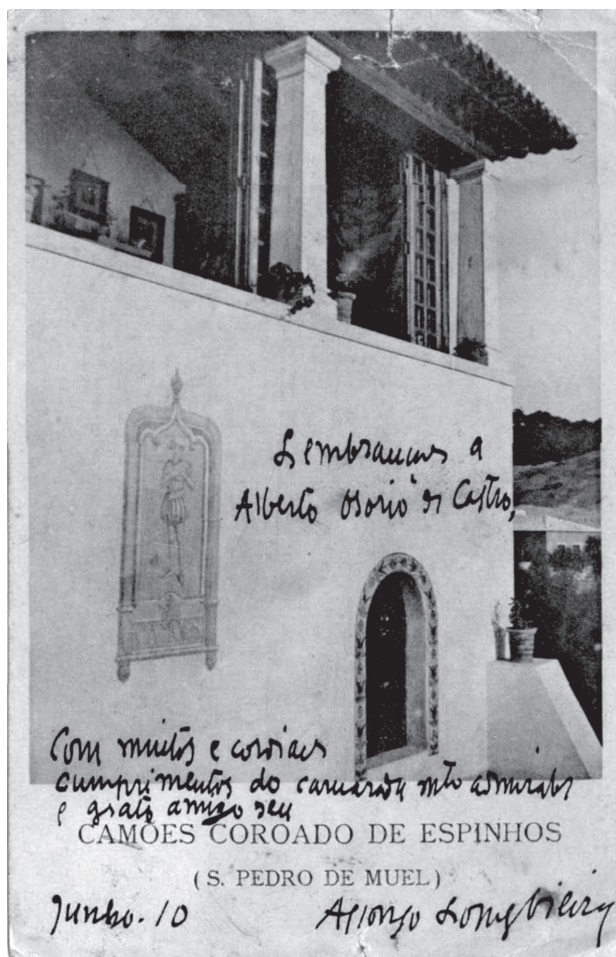 Lembranças a
Alberto Osorio de Castro,
Com muitos e cordiaes
cumprimentos do camarada mto admirador
e grato amigo seu
CAMÕES COROADO DE ESPINHOS
(S. PEDRO DE MUEL)
Junho. 10
Affonso Lopes Vieira